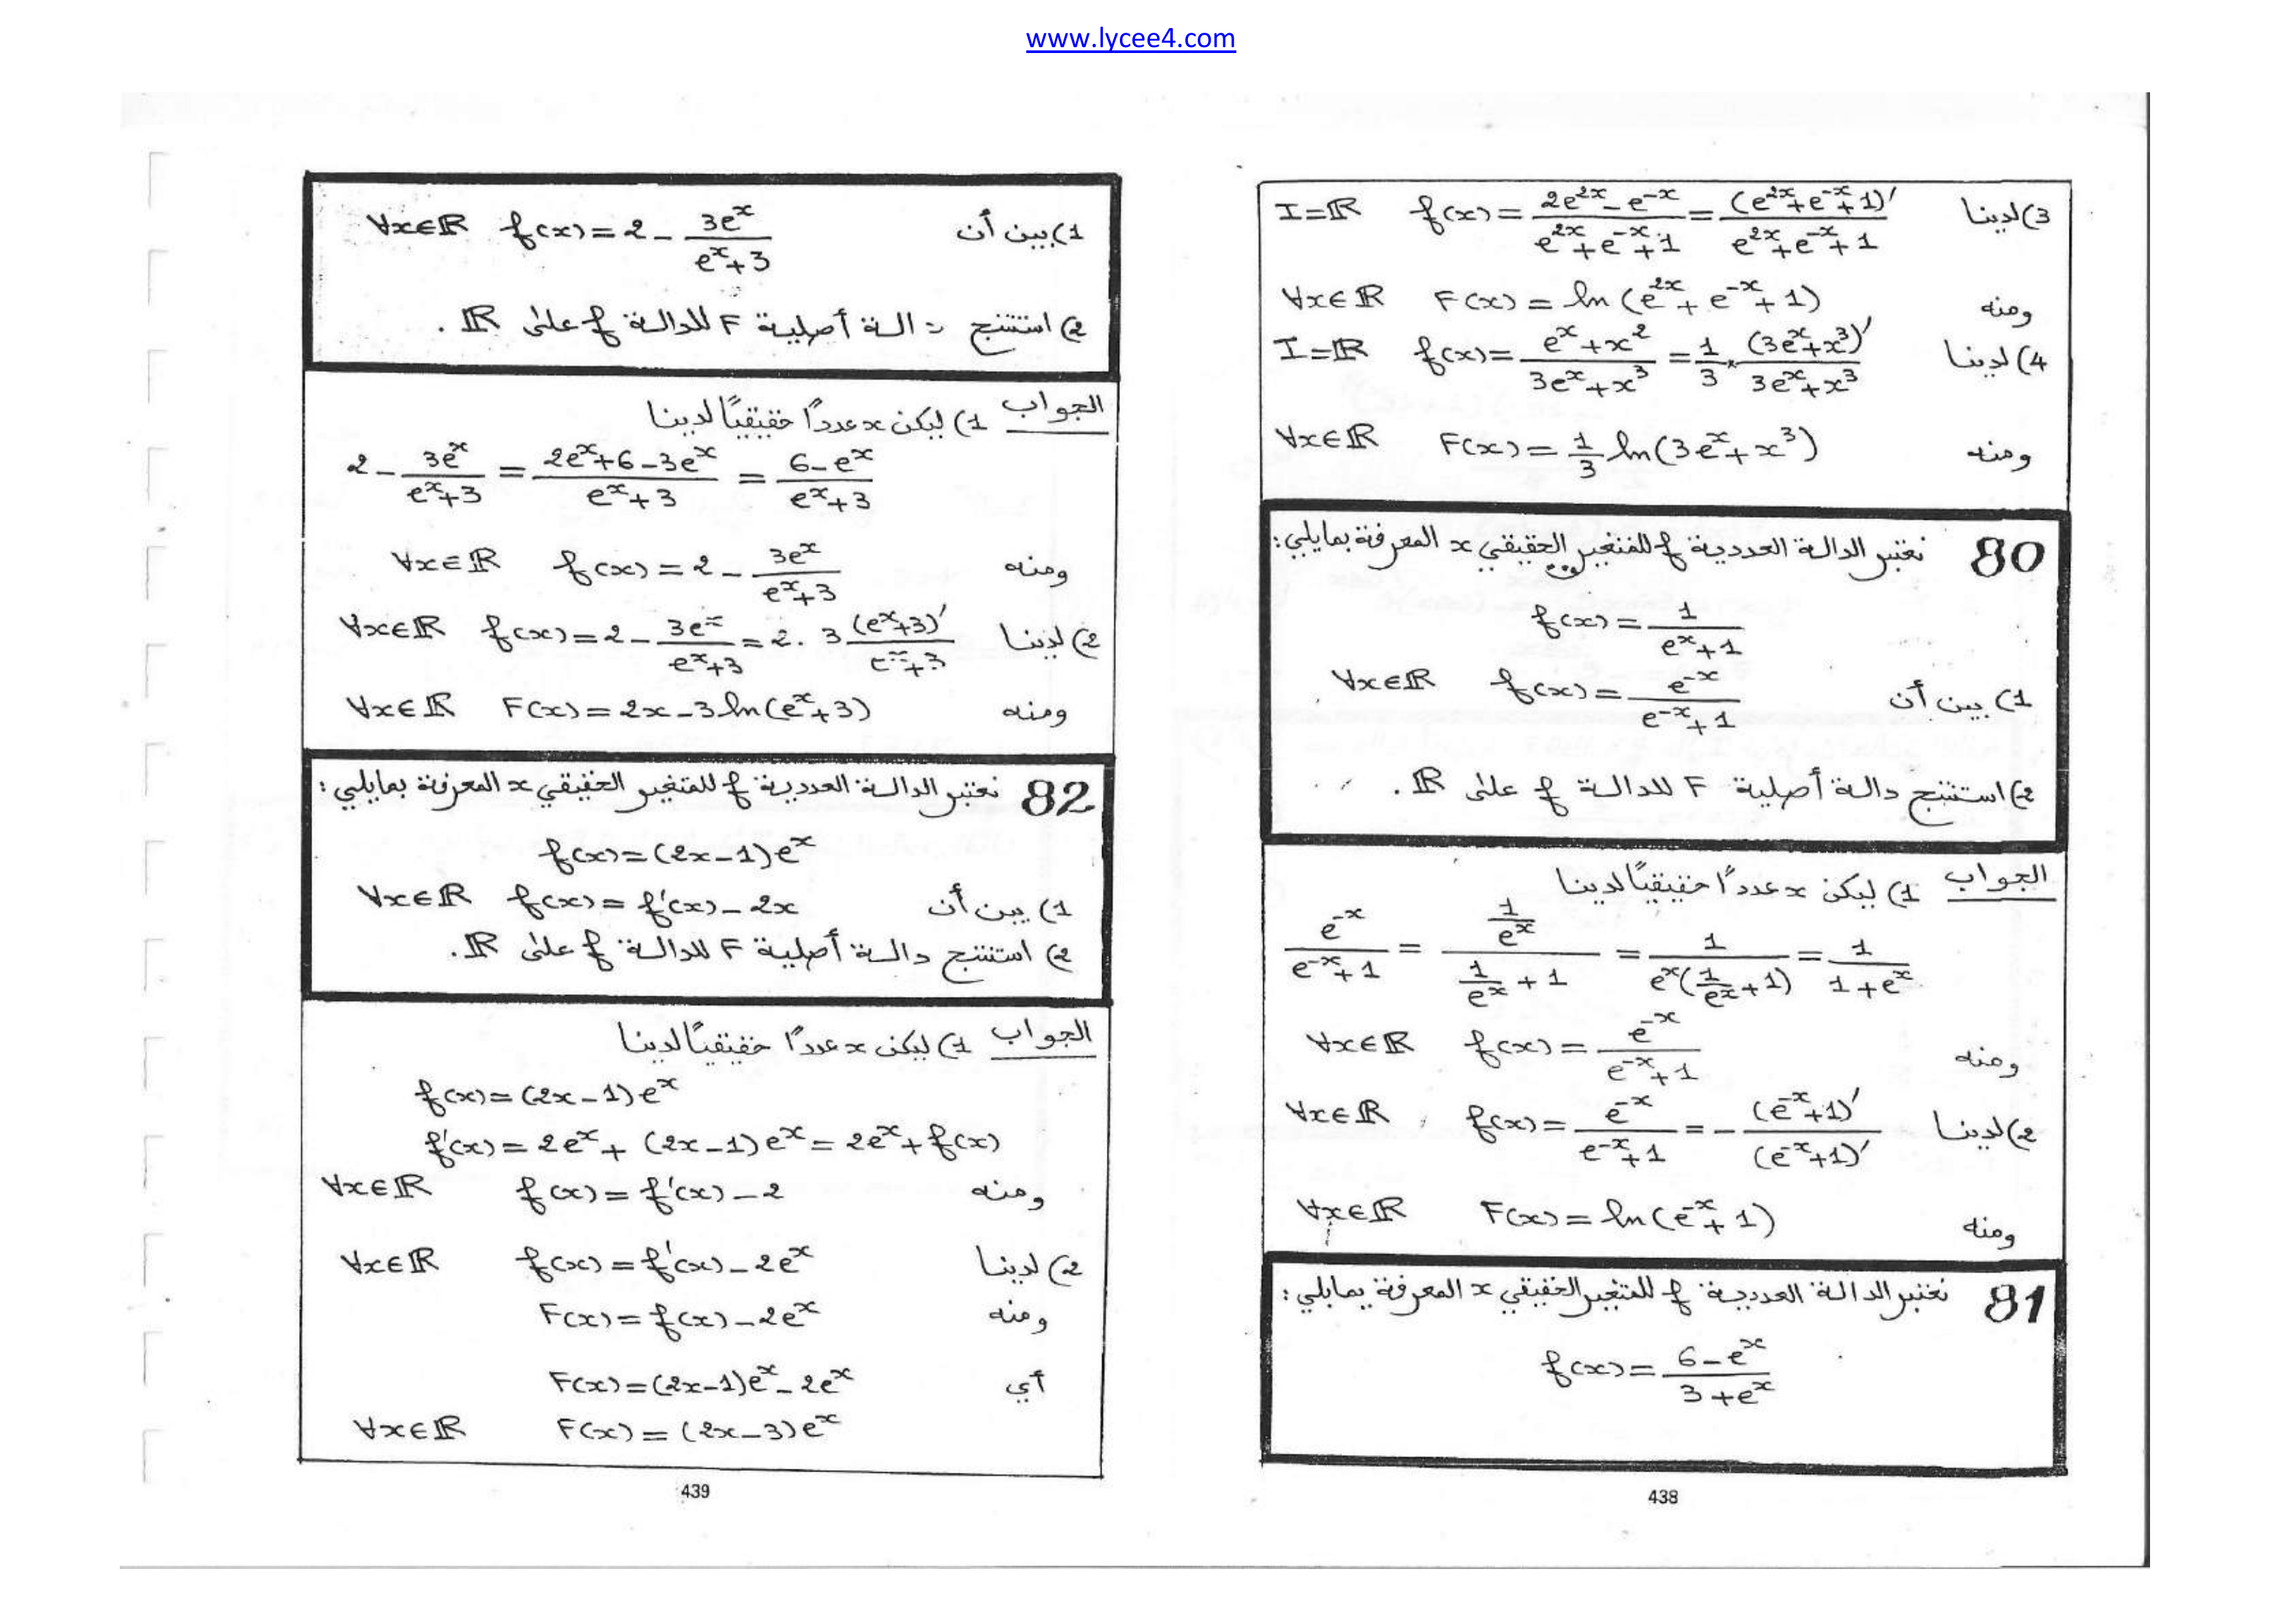 www.lycee4.com
3) لدينا f(x) = (2e^{2x} - e^{-x})/(e^{2x} + e^{-x} + 1) = (e^{2x} + e^{-x} + 1)'/(e^{2x} + e^{-x} + 1) I = ℝ
ومنه F(x) = ln(e^{2x} + e^{-x} + 1) ∀x∈ℝ
4) لدينا f(x) = (e^x + x^2)/(3e^x + x^3) = 1/3 × (3e^x + x^3)'/(3e^x + x^3) I = ℝ
ومنه F(x) = 1/3 ln(3e^x + x^3) ∀x∈ℝ
80 نعتبر الدالة العددية f للمتغير الحقيقي x المعرفة بمايلي:
f(x) = 1/(e^x + 1)
1) بين أن f(x) = e^{-x}/(e^{-x} + 1) ∀x∈ℝ
2) استنتج دالة أصلية F للدالة f على ℝ.
الجواب 1) ليكن x عددًا حقيقيًا لدينا
e^{-x}/(e^{-x} + 1) = (1/e^x)/(1/e^x + 1) = 1/(e^x(1/e^x + 1)) = 1/(1 + e^x)
ومنه f(x) = e^{-x}/(e^{-x} + 1) ∀x∈ℝ
2) لدينا f(x) = e^{-x}/(e^{-x} + 1) = -(e^{-x} + 1)'/(e^{-x} + 1)' ∀x∈ℝ
ومنه F(x) = ln(e^{-x} + 1) ∀x∈ℝ
81 نعتبر الدالة العددية f للمتغير الحقيقي x المعرفة بمايلي:
f(x) = (6 - e^x)/(3 + e^x)
438
1) بين أن f(x) = 2 - 3e^x/(e^x + 3) ∀x∈ℝ
2) استنتج دالة أصلية F للدالة f على ℝ.
الجواب 1) ليكن x عددًا حقيقيًا لدينا
2 - 3e^x/(e^x + 3) = (2e^x + 6 - 3e^x)/(e^x + 3) = (6 - e^x)/(e^x + 3)
ومنه f(x) = 2 - 3e^x/(e^x + 3) ∀x∈ℝ
2) لدينا f(x) = 2 - 3e^x/(e^x + 3) = 2 . 3 (e^x + 3)'/(e^x + 3) ∀x∈ℝ
ومنه F(x) = 2x - 3 ln(e^x + 3) ∀x∈ℝ
82 نعتبر الدالة العددية f للمتغير الحقيقي x المعرفة بمايلي:
f(x) = (2x - 1)e^x
1) بين أن f(x) = f'(x) - 2x ∀x∈ℝ
2) استنتج دالة أصلية F للدالة f على ℝ.
الجواب 1) ليكن x عددًا حقيقيًا لدينا
f(x) = (2x - 1)e^x
f'(x) = 2e^x + (2x - 1)e^x = 2e^x + f(x)
ومنه f(x) = f'(x) - 2 ∀x∈ℝ
2) لدينا f(x) = f'(x) - 2e^x ∀x∈ℝ
ومنه F(x) = f(x) - 2e^x
أي F(x) = (2x - 1)e^x - 2e^x
F(x) = (2x - 3)e^x ∀x∈ℝ
439